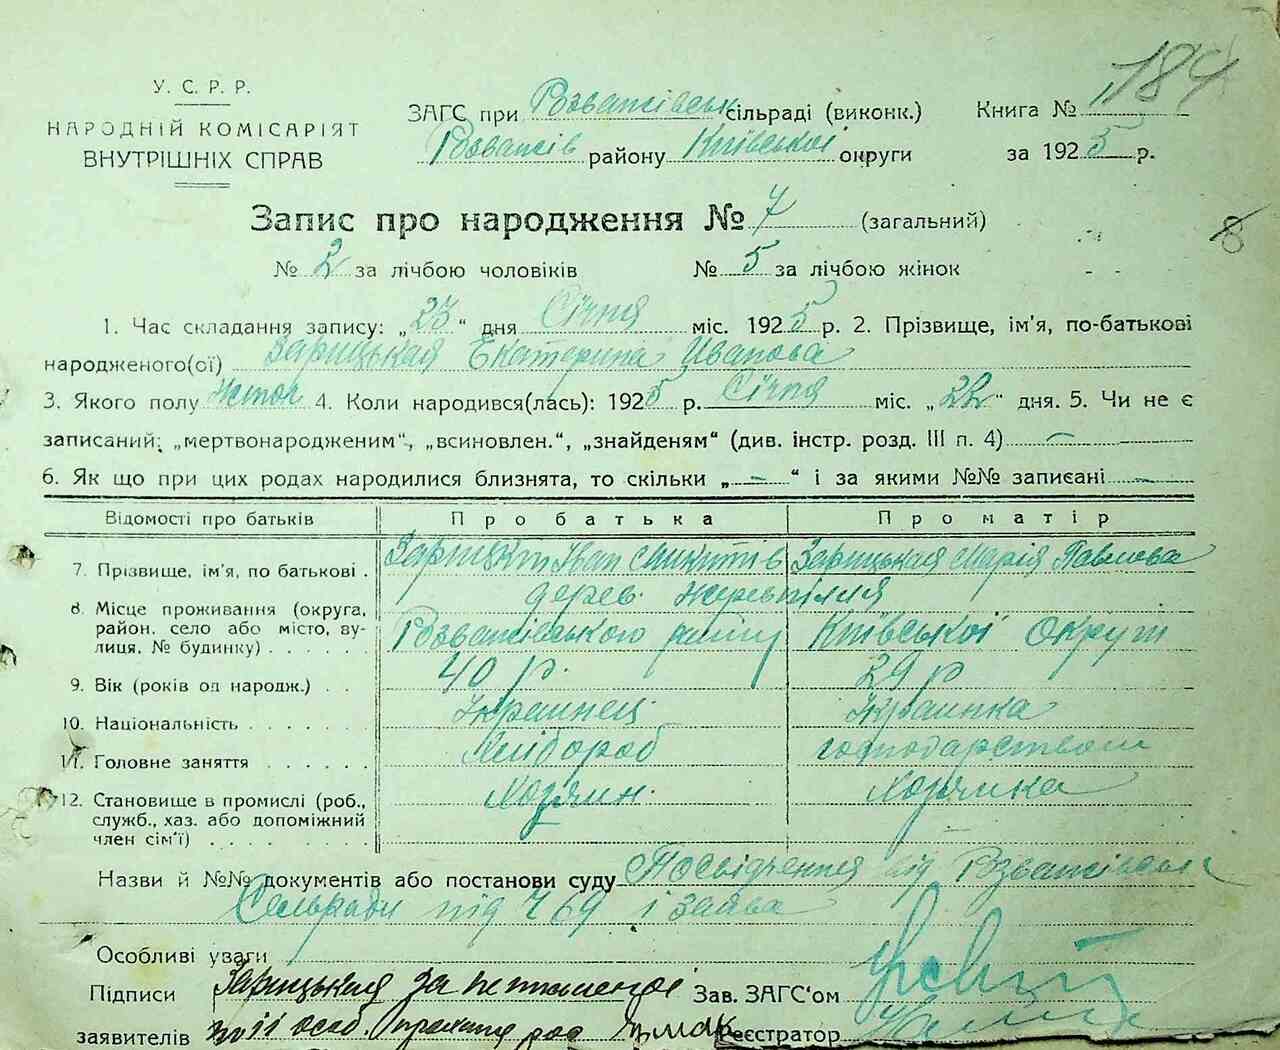 184
У. С. Р. Р.
НАРОДНІЙ КОМІСАРІЯТ
ВНУТРІШНІХ СПРАВ
ЗАГС при Розважівськ сільраді (виконк.)
Розважів району Київської округи
Книга № 1
за 1925 р.
Запис про народження № 7 (загальний)
8
№ 2 за лічбою чоловіків № 5 за лічбою жінок
1. Час складання запису: „23" дня Січня міс. 1925 р. 2. Прізвище, ім'я, по-батькові
народженого(ої) Зарицькая Екатерина Иванова
3. Якого полу Жіноч 4. Коли народився(лась): 1925 р. Січня міс. „22" дня. 5. Чи не є
записаний: „мертвонародженим", „всиновлен.", „знайденям" (див. інстр. розд. III п. 4) —
6. Як що при цих родах народилися близнята, то скільки „ — " і за якими №№ записані —
Відомості про батьків Про батька Про матір
7. Прізвище, ім'я, по батькові . Іван Микитів Зарицькая Марія Павлова
8. Місце проживання (округа, дерев.
район, село або місто, ву- Розважівського району Київської Округи
лиця, № будинку) . . . . .
9. Вік (років од народж.) . . 40 р. 29 р
10. Національність . . . . . . Украинец Украинка
11. Головне заняття . . . . . . Хлібороб господарством
12. Становище в промислі (роб., Хозяин. Хозяика
служб., хаз. або допоміжний
член сім'ї) . . . . . . . .
Назви й №№ документів або постанови суду Посвідчення від Розважівськ
Сельради під 769 і заява
Особливі уваги
Підписи Зарицькая за Зав. ЗАГС'ом
заявителів Реєстратор